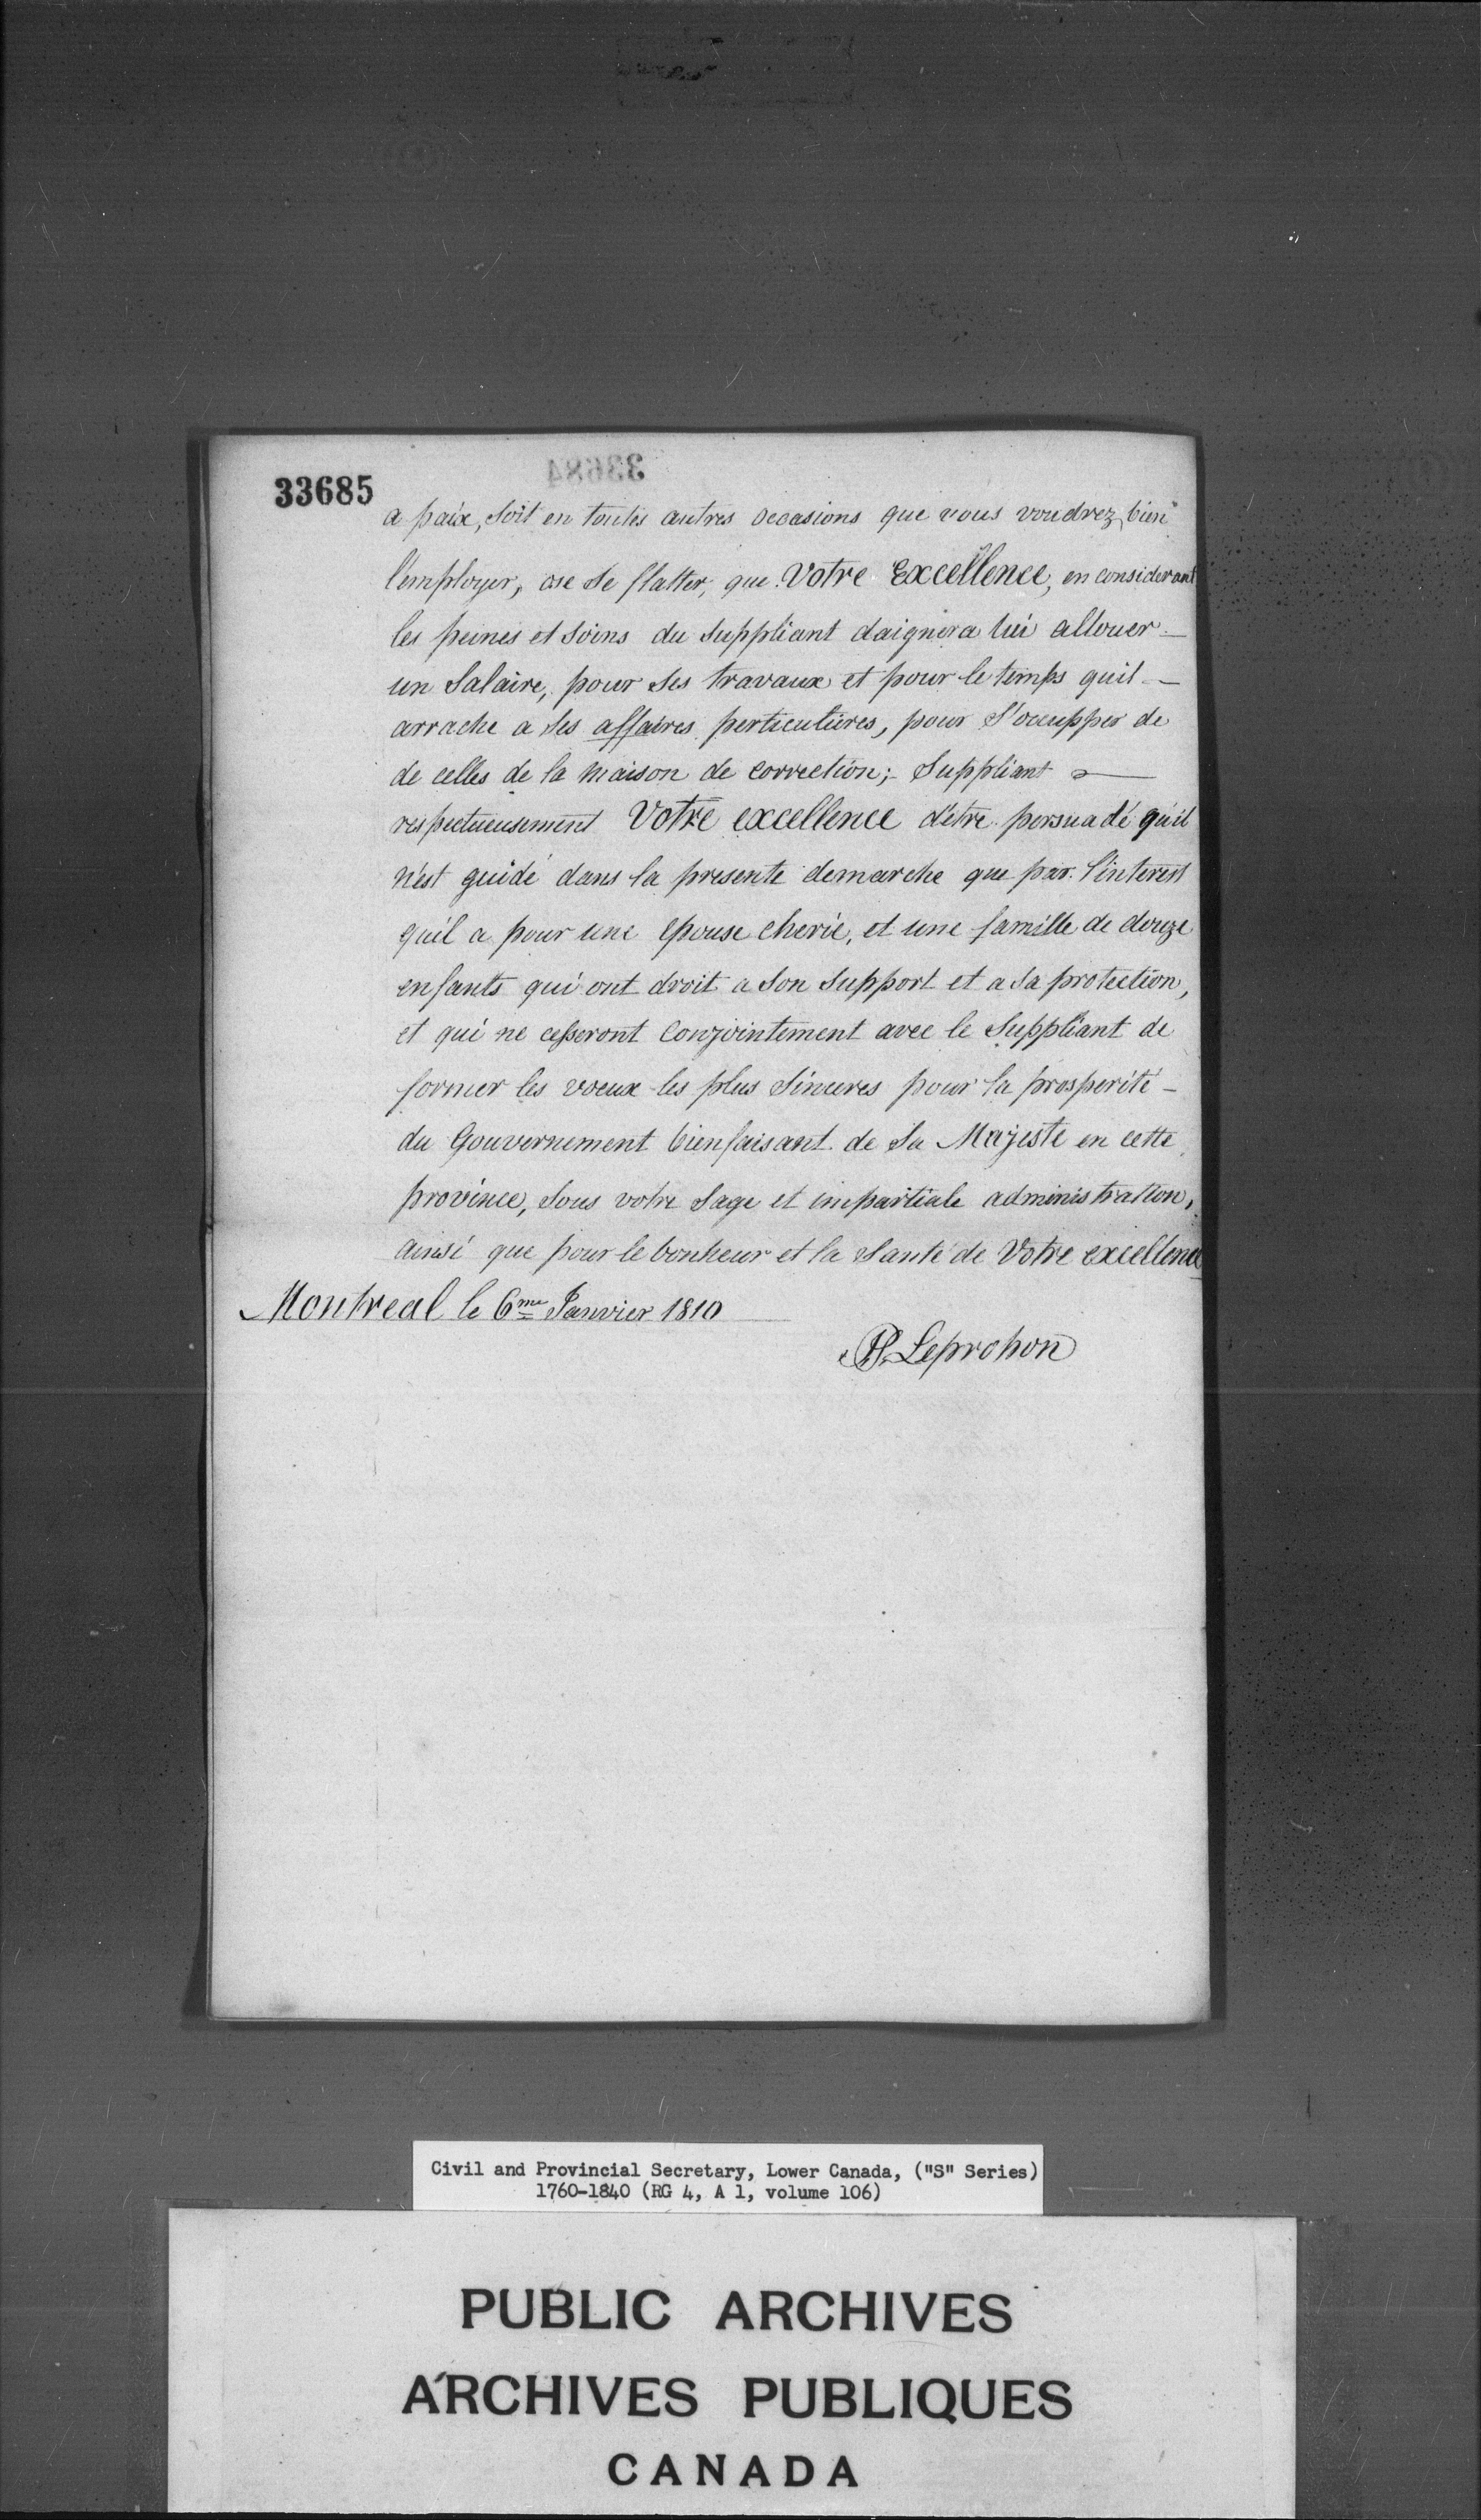 33685
33684
a paix, soit en toutes autres occasions que vous voudrez bien
l'employer, ose se flatter, que Votre Excellence, en considerant
les peines et soins du suppliant daignera lui allouer
un Salaire, pour ses travaux et pour le temps quil
arrache a ses affaires perticulieres, pour s'occupper de
de celles de la Maison de Correction; Suppliant
respectueusement Votre excellence d'etre persuadé qu'il
n'est guidé dans la presente demarche que par l'interest
qu'il a pour une epouse cherie, et une famille de douze
enfants qui ont droit a son support et a sa protection,
et qui ne cesseront conjointement avec le Suppliant de
former les voeux les plus sinceres pour la prosperité
du Gouvernement bienfaisant de Sa Majeste en cette
province, sous votre sage et impartiale administration,
ainsi que pour le bonheur et la santé de Votre excellence
Montreal le 6me Janvier 1810
Leprohon
Civil and Provincial Secretary, Lower Canada, ("S" Series)
1760-1840 (RG 4, A 1, volume 106)
PUBLIC ARCHIVES
ARCHIVES PUBLIQUES
CANADA